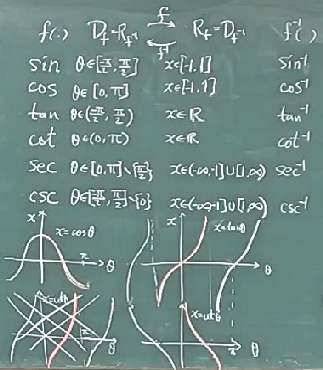 f(.) D_f=R_{f^{-1}} f R_f=D_{f^{-1}} f^{-1}(.)
f^{-1}
sin θ∈[-π/2, π/2] x∈[-1,1] sin^{-1}
cos θ∈[0,π] x∈[-1,1] cos^{-1}
tan θ∈(-π/2, π/2) x∈ℝ tan^{-1}
cot θ∈(0,π) x∈ℝ cot^{-1}
sec θ∈[0,π]\{π/2} x∈(-∞,-1]∪[1,∞) sec^{-1}
csc θ∈[-π/2, π/2]\{0} x∈(-∞,-1]∪[1,∞) csc^{-1}
x x=cosθ
π θ
x x=tanθ
θ
x=cotθ
π θ
x=cotθ
π θ